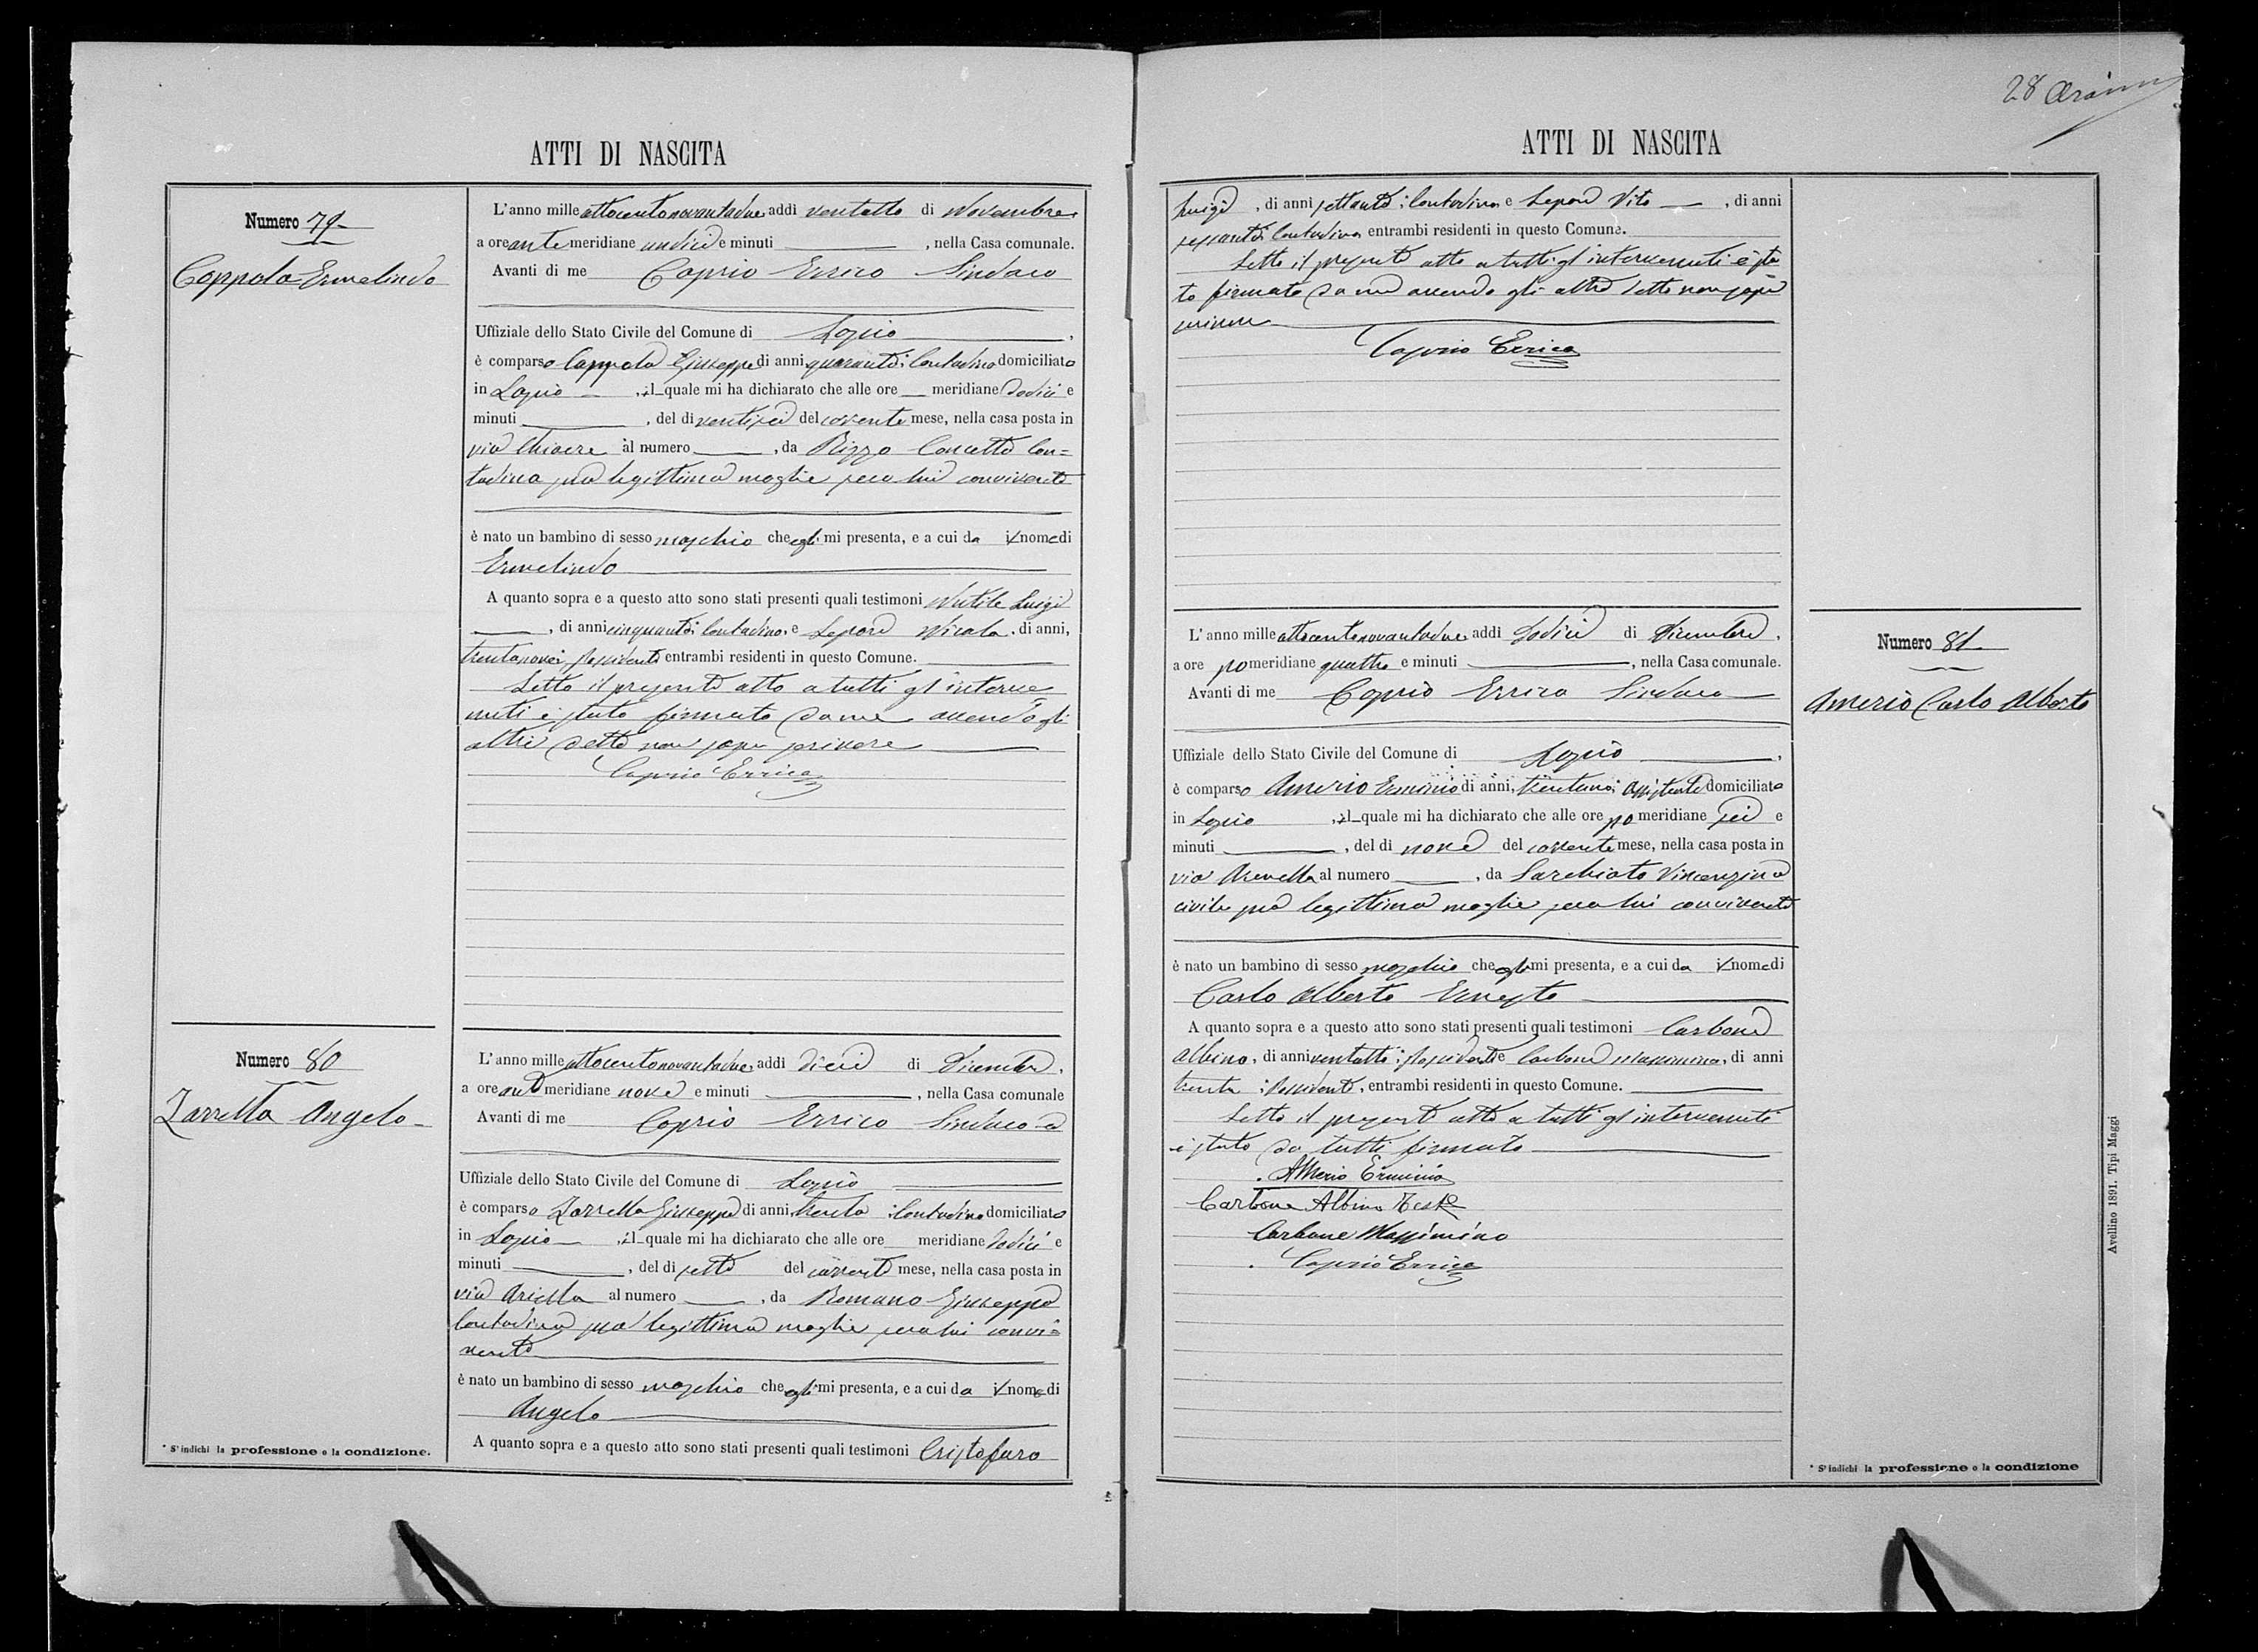 28
ATTI DI NASCITA
Numero 79
Coppola Ermelindo
L'anno milleottocentonovantadue, addì ventotto di Novembre
a ore antemeridiane undici e minuti , nella Casa comunale.
Avanti di me Caprio Errico Sindaco
Uffiziale dello Stato Civile del Comune di Lapio ,
è comparso Coppola Giuseppe di anni quaranta; Contadino domiciliato
in Lapio , il quale mi ha dichiarato che alle ore meridiane dodici e
minuti , del dì ventisei del corrente mese, nella casa posta in
via Chiaere al numero , da Rizzo Concetta Con=
tadina sua legittima moglie seco lui convivente
è nato un bambino di sesso maschio che egli mi presenta, e a cui da il nome di
Ermelindo
A quanto sopra e a questo atto sono stati presenti quali testimoni Nutile Luigi
, di anni cinquanta; Contadino, e Lepore Nicola, di anni,
trentanove; possidente entrambi residenti in questo Comune.
Letto il presente atto a tutti gl'interve
nuti è stato firmato da me avendo gli
altri detto non saper scrivere
Caprio Errico
Numero 80
Zarrella Angelo
L'anno milleottocentonovantadue, addì dieci di Dicembre,
a ore antemeridiane nove e minuti , nella Casa comunale
Avanti di me Caprio Errico Sindaco
Uffiziale dello Stato Civile del Comune di Lapio
è comparso Zarrella Giuseppe di anni, trenta; Contadino domiciliato
in Lapio , il quale mi ha dichiarato che alle ore meridiane dodici e
minuti , del dì sette del corrente mese, nella casa posta in
via Ariella al numero , da Romano Giuseppa
Contadina sua legittima moglie seco lui convi=
vente
è nato un bambino di sesso maschio che egli mi presenta, e a cui da il nome di
Angelo
A quanto sopra e a questo atto sono stati presenti quali testimoni Cristofaro
* S'indichi la professione o la condizione.
ATTI DI NASCITA
Luigi , di anni settanta; Contadino, e Lepore Vito , di anni
sessanta; Contadino entrambi residenti in questo Comune.
Letto il presente atto a tutti gl'intervenuti è sta
to firmato da me avendo gli altri detto non saper
scrivere
Caprio Errico
L'anno milleottocentonovantadue, addì dodici di Dicembre,
a ore pomeridiane quattro e minuti , nella Casa comunale.
Avanti di me Caprio Errico Sindaco
Uffiziale dello Stato Civile del Comune di Lapio ,
è comparso Amerio Erminio di anni, trentuno; Assistente domiciliato
in Lapio , il quale mi ha dichiarato che alle ore pomeridiane sei e
minuti , del dì nove del corrente mese, nella casa posta in
via Arenella al numero , da Sarchiato Vincenzina
civile sua legittima moglie seco lui convivente
è nato un bambino di sesso maschio che egli mi presenta, e a cui da il nome di
Carlo Alberto Ernesto
A quanto sopra e a questo atto sono stati presenti quali testimoni Carbone
Albino, di anni ventotto; possidente e Carbone Massimino, di anni
trenta; possidente, entrambi residenti in questo Comune.
Letto il presente atto a tutti gl'intervenuti
è stato da tutti firmato
Amerio Erminio
Carbone Albino Teste
Carbone Massimino
Caprio Errico
Numero 81
Amerio Carlo Alberto
* S'indichi la professione o la condizione
Avellino 1891. Tipi Maggi